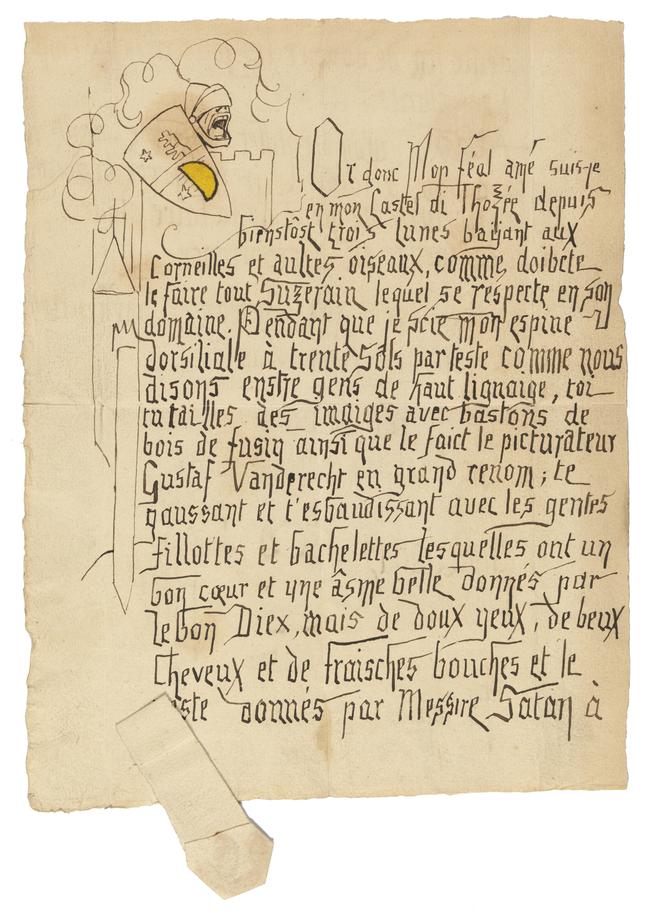 Or donc Mon féal amé suis-je
en mon Castel di Thozée depuis
bienstôst trois lunes bayant aux
Corneilles et aultes oiseaux, comme doibcte
le faire tout Suzerain lequel se respecte en son
domaine. Pendant que je scie mon espine
dorsiliale à trente sols par teste comme nous
disons enstre gens de haut lignaige, toi
tu tailles des imaiges avec bastons de
bois de fusin ainsi que le faict le picturateur
Gustaf Vanderecht en grand renom ; te
gaussant et t'esbaudissant avec les gentes
fillottes et bachelettes lesquelles ont un
bon cœur et une âsme belle donnés par
le bon Diex, mais de doux yeux, de beux
Cheveux et de fraisches bouches et le
este donnés par Messire Satan à